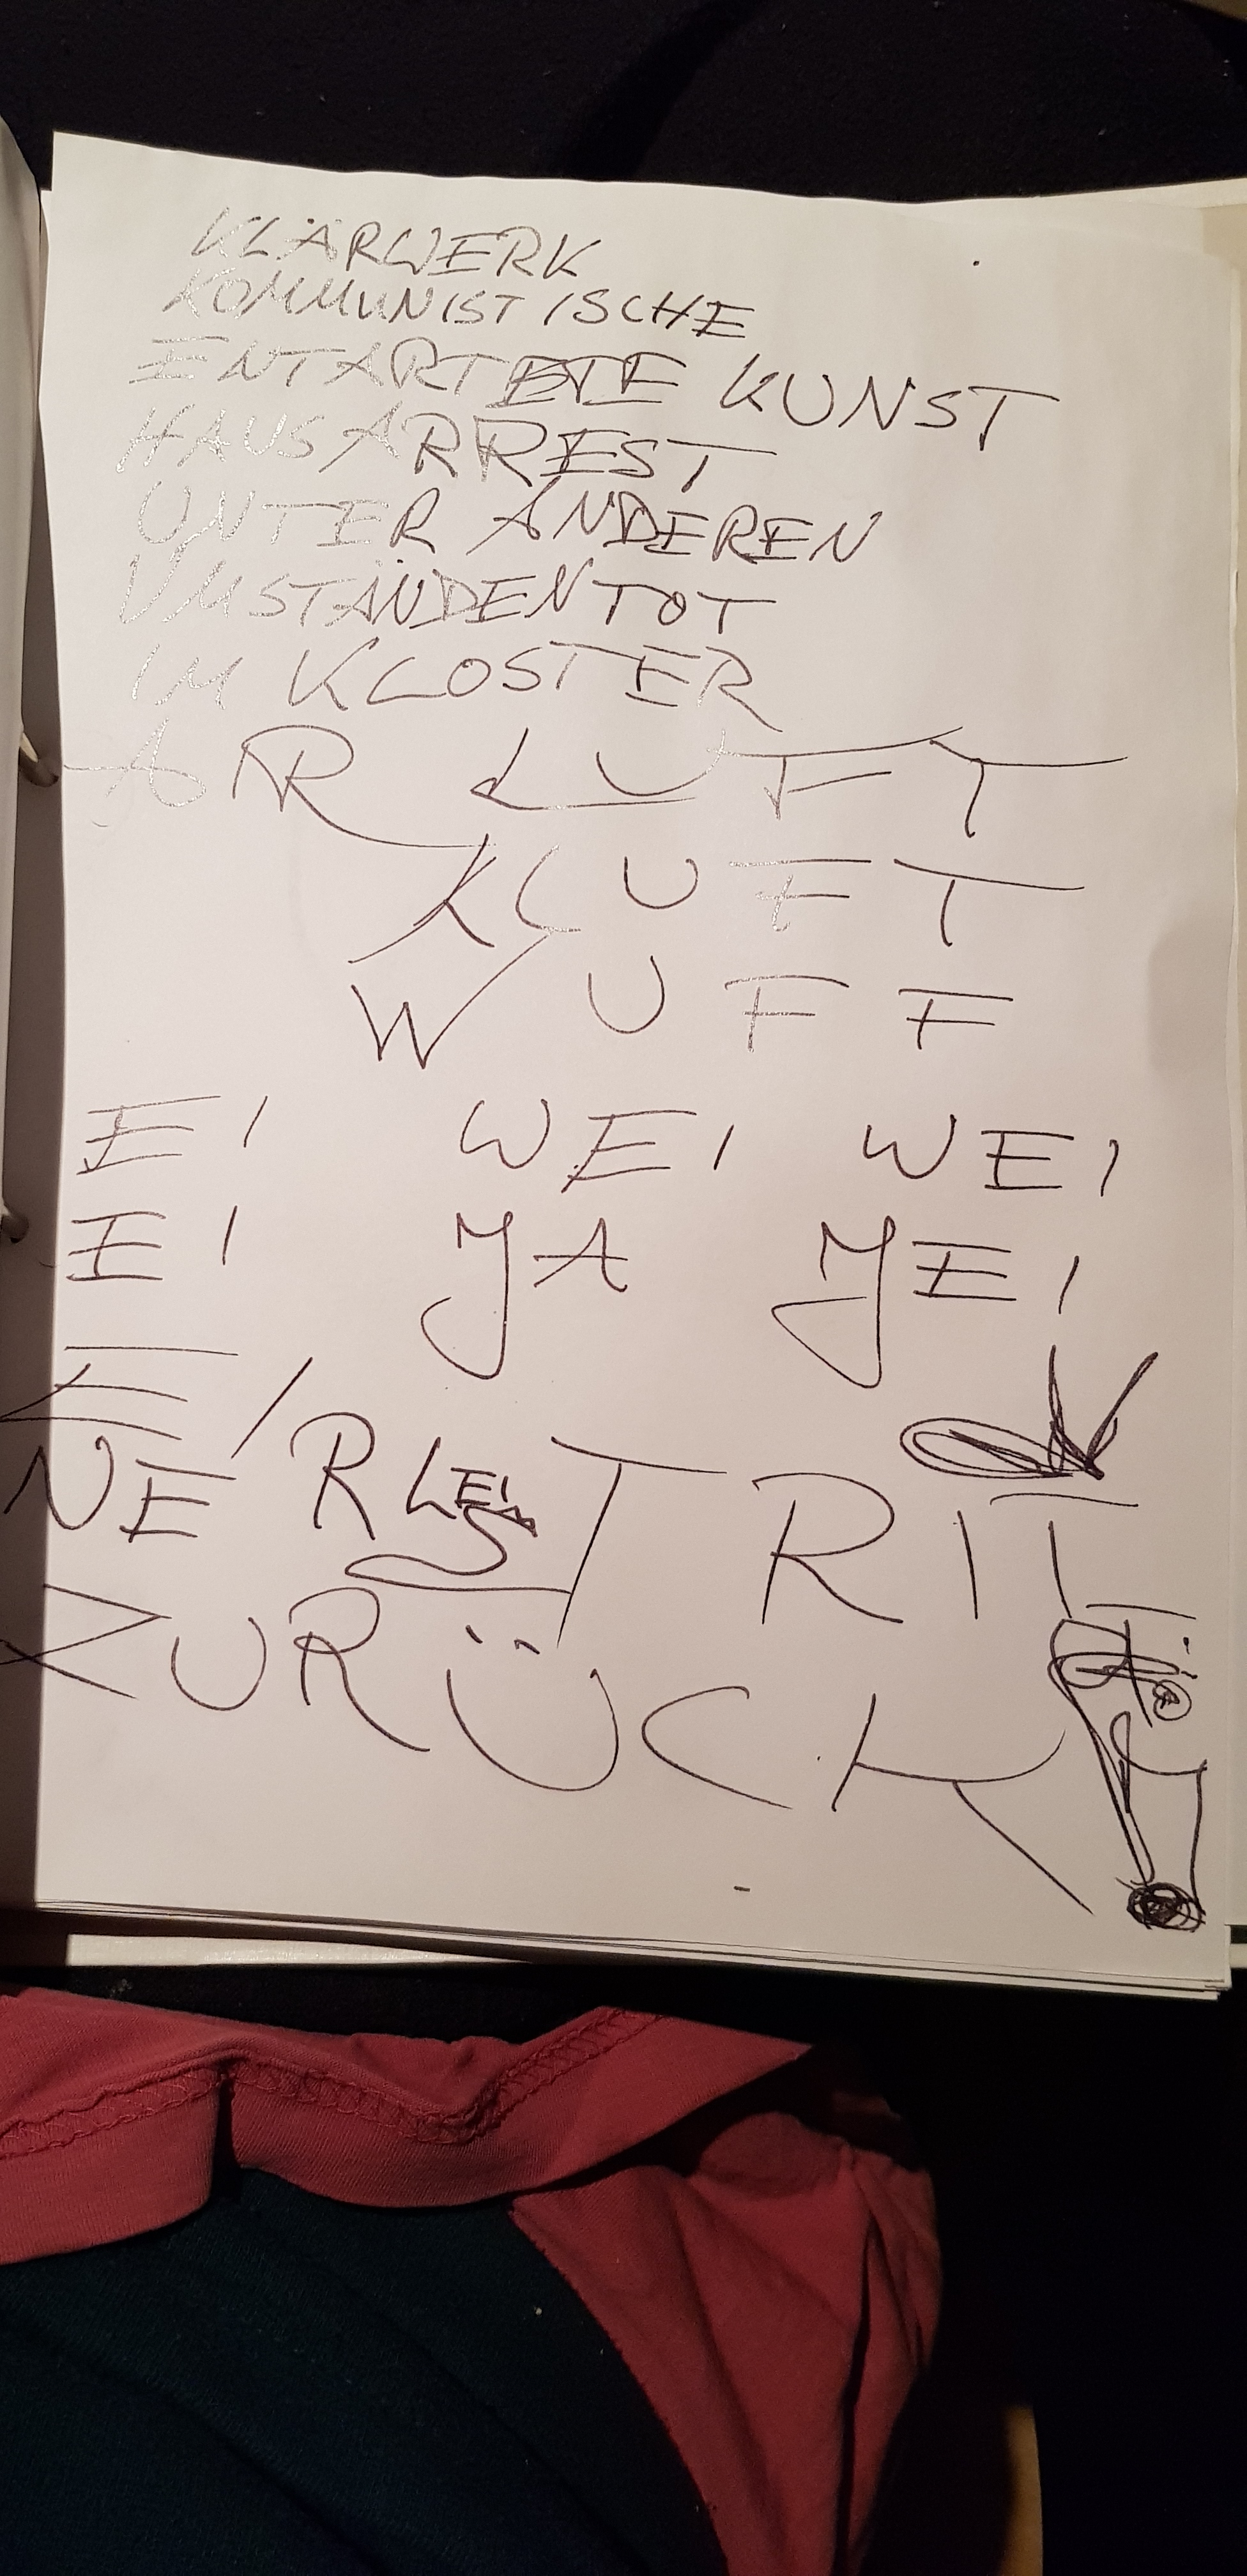 KLÄRWERK
KOMMUNISTISCHE
ENTARTETE KUNST
HAUSARREST
UNTER ANDEREN
UMSTÄNDEN TOT
IM KLOSTER
AR LUFT
KLUFT
WUFF
EI WEI WEI
EI JA JEI
EI
NE RLEI TRITT
ZURÜCK